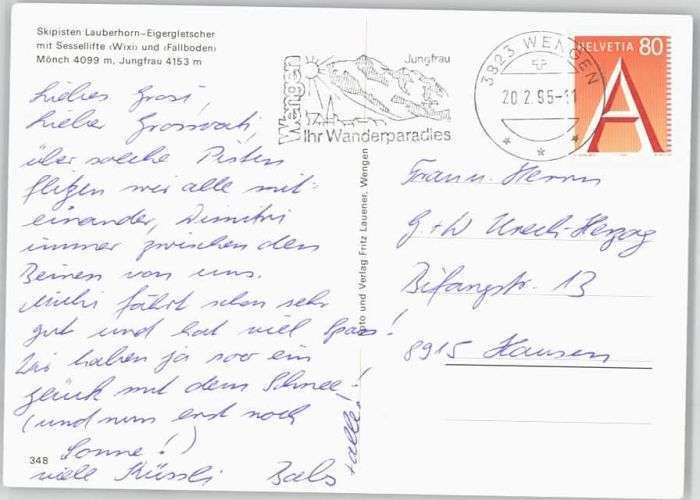 Skipisten Lauberhorn-Eigergletscher
mit Sessellifte (Wixi) und (Fallboden)
Mönch 4099 m, Jungfrau 4153 m
Liebes Grosi,
Lieber Grossvati,
über solche Pisten
flitzen wir alle mit-
einander, Dimitri
immer zwischen den
Beinen von uns.
fährt schon sehr
gut und hat viel Spass!
Wir haben ja soo ein
Glück mit dem Schnee!
(und nun erst noch
Sonne!)
viele Küssli Babs
+ alle
348
Foto und Verlag Fritz Lauener, Wengen
Wengen
Jungfrau
Ihr Wanderparadies
3823 WENGEN
20.2.95-11
HELVETIA 80
A
Frau u. Herrn
G+W Urech-Herzog
Bifangstr. 13
8915 Hausen